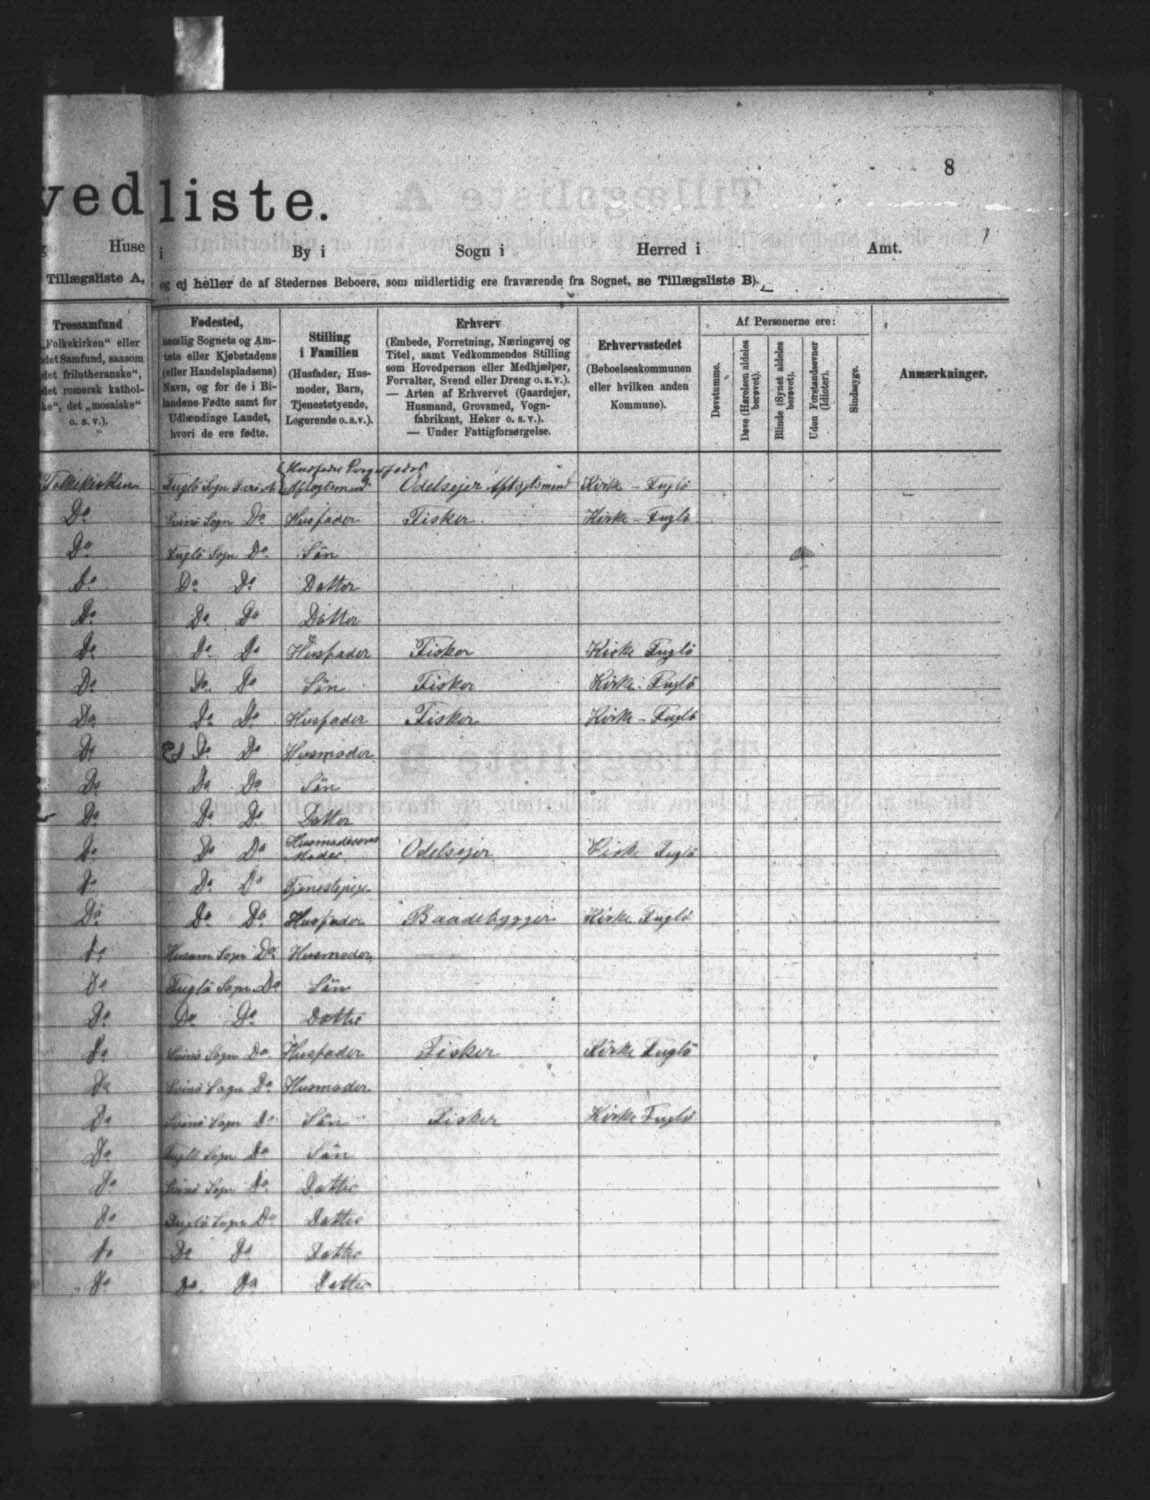 8
vedliste.
Huse i By i Sogn i Herred i Amt.
Tillægsliste A, og ej heller de af Stedernes Beboere, som midlertidig ere fraværende fra Sognet, se Tillægsliste B).
Trossamfund
„Folkekirken“ eller
det Samfund, saasom
det frilutheranske“,
det romersk kathol-
ke“, det „mosaiske“
o. s. v.).
Fødested,
nemlig Sognets og Am-
tets eller Kjøbstadens
(eller Handelspladsens)
Navn, og for de i Bi-
landene Fødte samt for
Udlændinge Landet,
hvori de ere fødte.
Stilling
i Familien
(Husfader, Hus-
moder, Barn,
Tjenestetyende,
Logerende o. s. v.).
Erhverv
(Embede, Forretning, Næringsvej og
Titel, samt Vedkommendes Stilling
som Hovedperson eller Medhjælper,
Forvalter, Svend eller Dreng o. s. v.).
— Arten af Erhvervet (Gaardejer,
Husmand, Grovsmed, Vogn-
fabrikant, Høker o. s. v.).
— Under Fattigforsørgelse.
Erhvervsstedet
(Beboelseskommunen
eller hvilken anden
Kommune).
Af Personerne ere:
Døvstumme.
Døve (Hørelsen aldeles
berøvet).
Blinde (Synet aldeles
berøvet).
Uden Forstandsevner
(Idioter).
Sindssyge.
Anmærkninger.
Folkekirken Fuglö Sogn Aftægtsmand Odelsejer Aftægtsmand Kirke - Fuglö
Do Svinö Sogn Do Husfader Fisker Kirke - Fuglö
Do Fuglö Sogn Do Sön
Do Do Do Datter
Do Do Do Datter
Do Do Do Husfader Fisker Kirke Fuglö
Do Do Do Sön Fisker Kirke Fuglö
Do Do Do Husfader Fisker Kirke - Fuglö
Do Do Do Husmoder
Do Do Do Sön
Do Do Do Datter
Do Do Do Husmoderens Moder Odelsejer Kirke Fuglö
Do Do Do Tjenestepige
Do Do Do Husfader Baadebygger Kirke Fuglö
Do Husum Sogn Do Husmoder
Do Fuglö Sogn Do Sön
Do Do Do Datter
Do Svinö Sogn Do Husfader Fisker Kirke Fuglö
Do Svinö Sogn Do Husmoder
Do Svinö Sogn Do Sön Fisker Kirke Fuglö
Do Fuglö Sogn Do Sön
Do Svinö Sogn Do Datter
Do Fuglö Sogn Do Datter
Do Do Do Datter
Do Do Do Datter